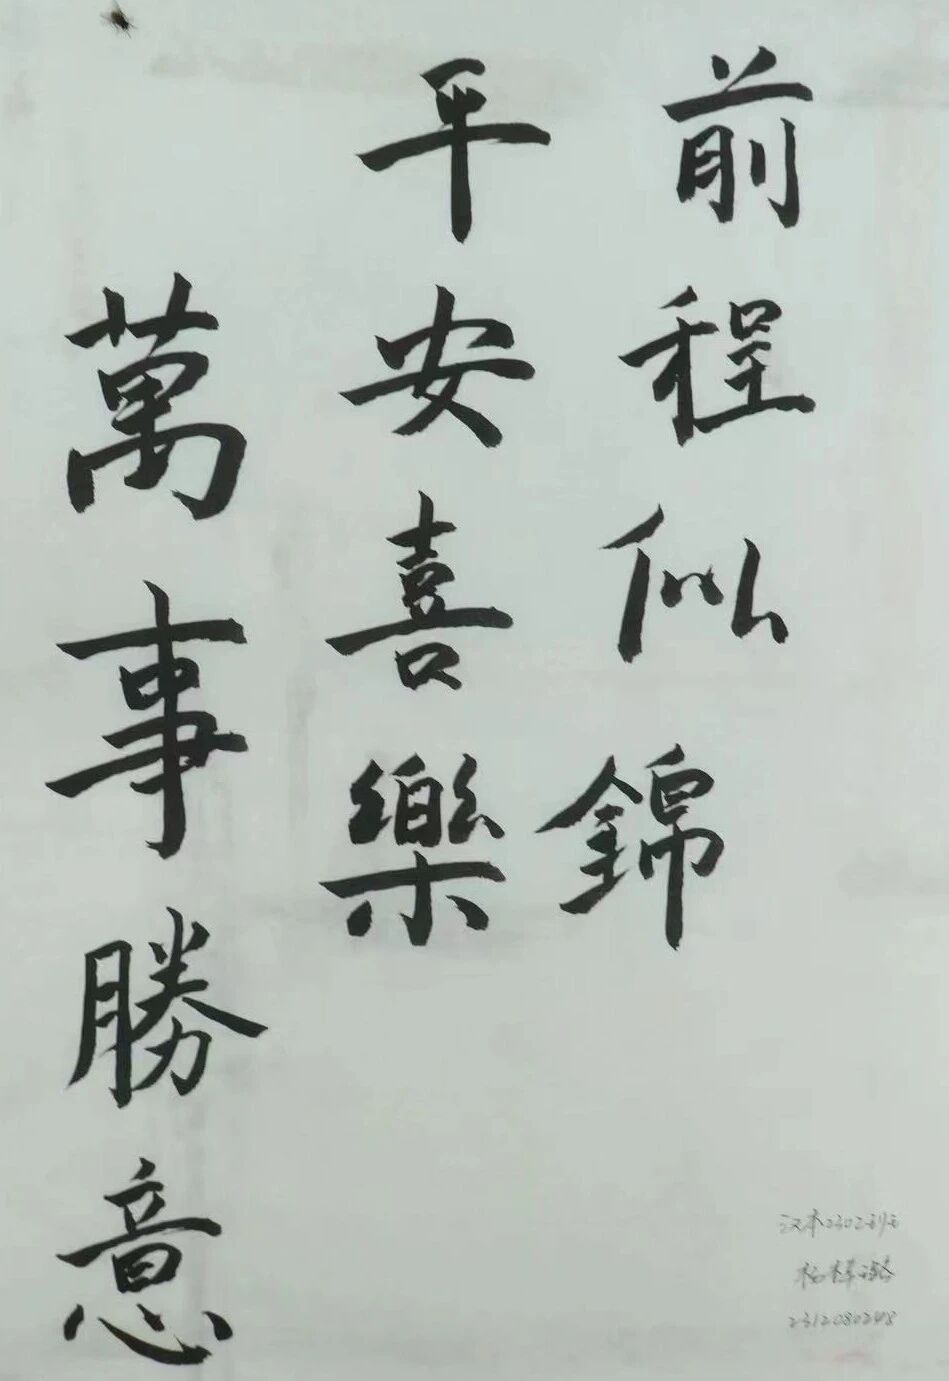 前程似錦
平安喜樂
萬事勝意
汉本2302班
2312080248